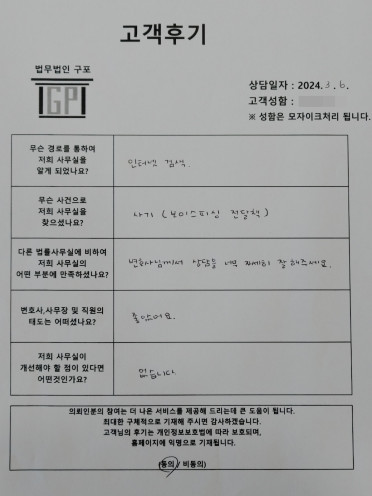 고객후기
법무법인 구포
GP
상담일자 : 2024. 3. 6.
고객성함 :
※ 성함은 모자이크처리 됩니다.
무슨 경로를 통하여
저희 사무실을
알게 되었나요?
인터넷 검색.
무슨 사건으로
저희 사무실을
찾으셨나요?
사기 (보이스피싱 전달책)
다른 법률사무실에 비하여
저희 사무실의
어떤 부분에 만족하셨나요?
변호사님께서 상담을 너무 자세히 잘 해주세요.
변호사,사무장 및 직원의
태도는 어떠셨나요?
좋았어요.
저희 사무실이
개선해야 할 점이 있다면
어떤것인가요?
없습니다.
의뢰인분의 참여는 더 나은 서비스를 제공해 드리는데 큰 도움이 됩니다.
최대한 구체적으로 기재해 주시면 감사하겠습니다.
고객님의 후기는 개인정보보호법에 따라 보호되며,
홈페이지에 익명으로 기재됩니다.
(동의 / 비동의)